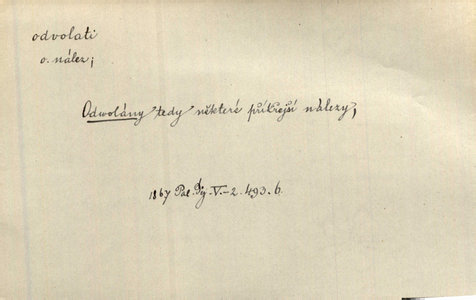 odvolati
o. nález;
Odwolány tedy některé příkřejší nálezy,
1867 Pal. Děj. V.-2. 493. b.